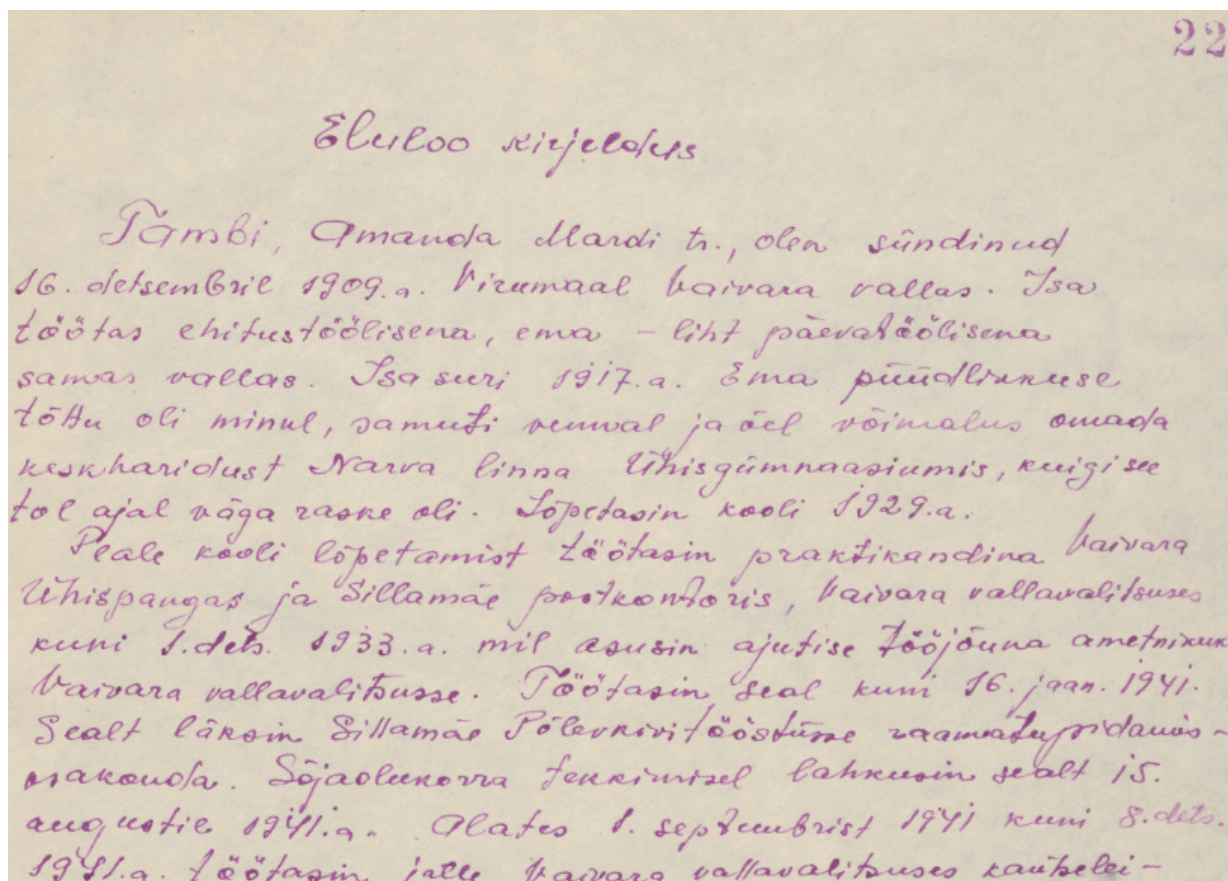 22
Eluloo kirjeldus
Tambi, Amanda Mardi tr., olen sündinud
16. detsembril 1909.a. Virumaal Vaivara vallas. Isa
töötas ehitustöölisena, ema – liht päevatöölisena
samas vallas. Isa suri 1917.a. Ema püüdlikkuse
tõttu oli minul, samuti vennal ja õel võimalus omada
keskharidust Narva linna Ühisgümnaasiumis, kuigi see
tol ajal väga raske oli. Lõpetasin kooli 1929.a.
Peale kooli lõpetamist töötasin praktikandina Vaivara
Ühispangas ja Sillamäe postkontoris, Vaivara vallavalitsuses
kuni 1. dets. 1933.a. mil asusin ajutise tööjõuna ametnikuk
Vaivara vallavalitsusse. Töötasin seal kuni 16. jaan. 1941.
Sealt läksin Sillamäe Põlevkivitööstusse raamatupidamis-
osakonda. Sõjaolukorra tekkimisel lahkusin sealt 15.
augustil 1941.a. Alates 1. septembrist 1941 kuni 8. dets.
1941.a. töötasin jälle Vaivara vallavalitsuses kantselei-